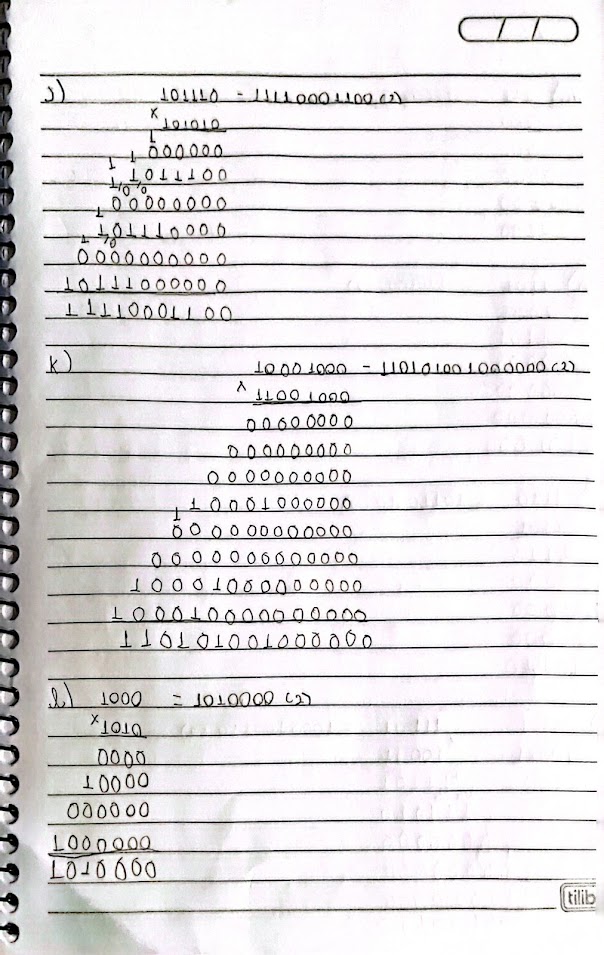 J) 101110 = 11110001100(2)
x 101010
1
000000
1 1
1011100
1 10 10
00000000
1
101110000
1 10
0000000000
10111000000
11110001100
K) 10001000 = 110101001000000(2)
x 11001000
00000000
000000000
0000000000
10001000000
1
000000000000
0000000000000
10001000000000
100010000000000
110101001000000
l) 1000 = 1010000(2)
x 1010
0000
10000
000000
1000000
1010000
tilib